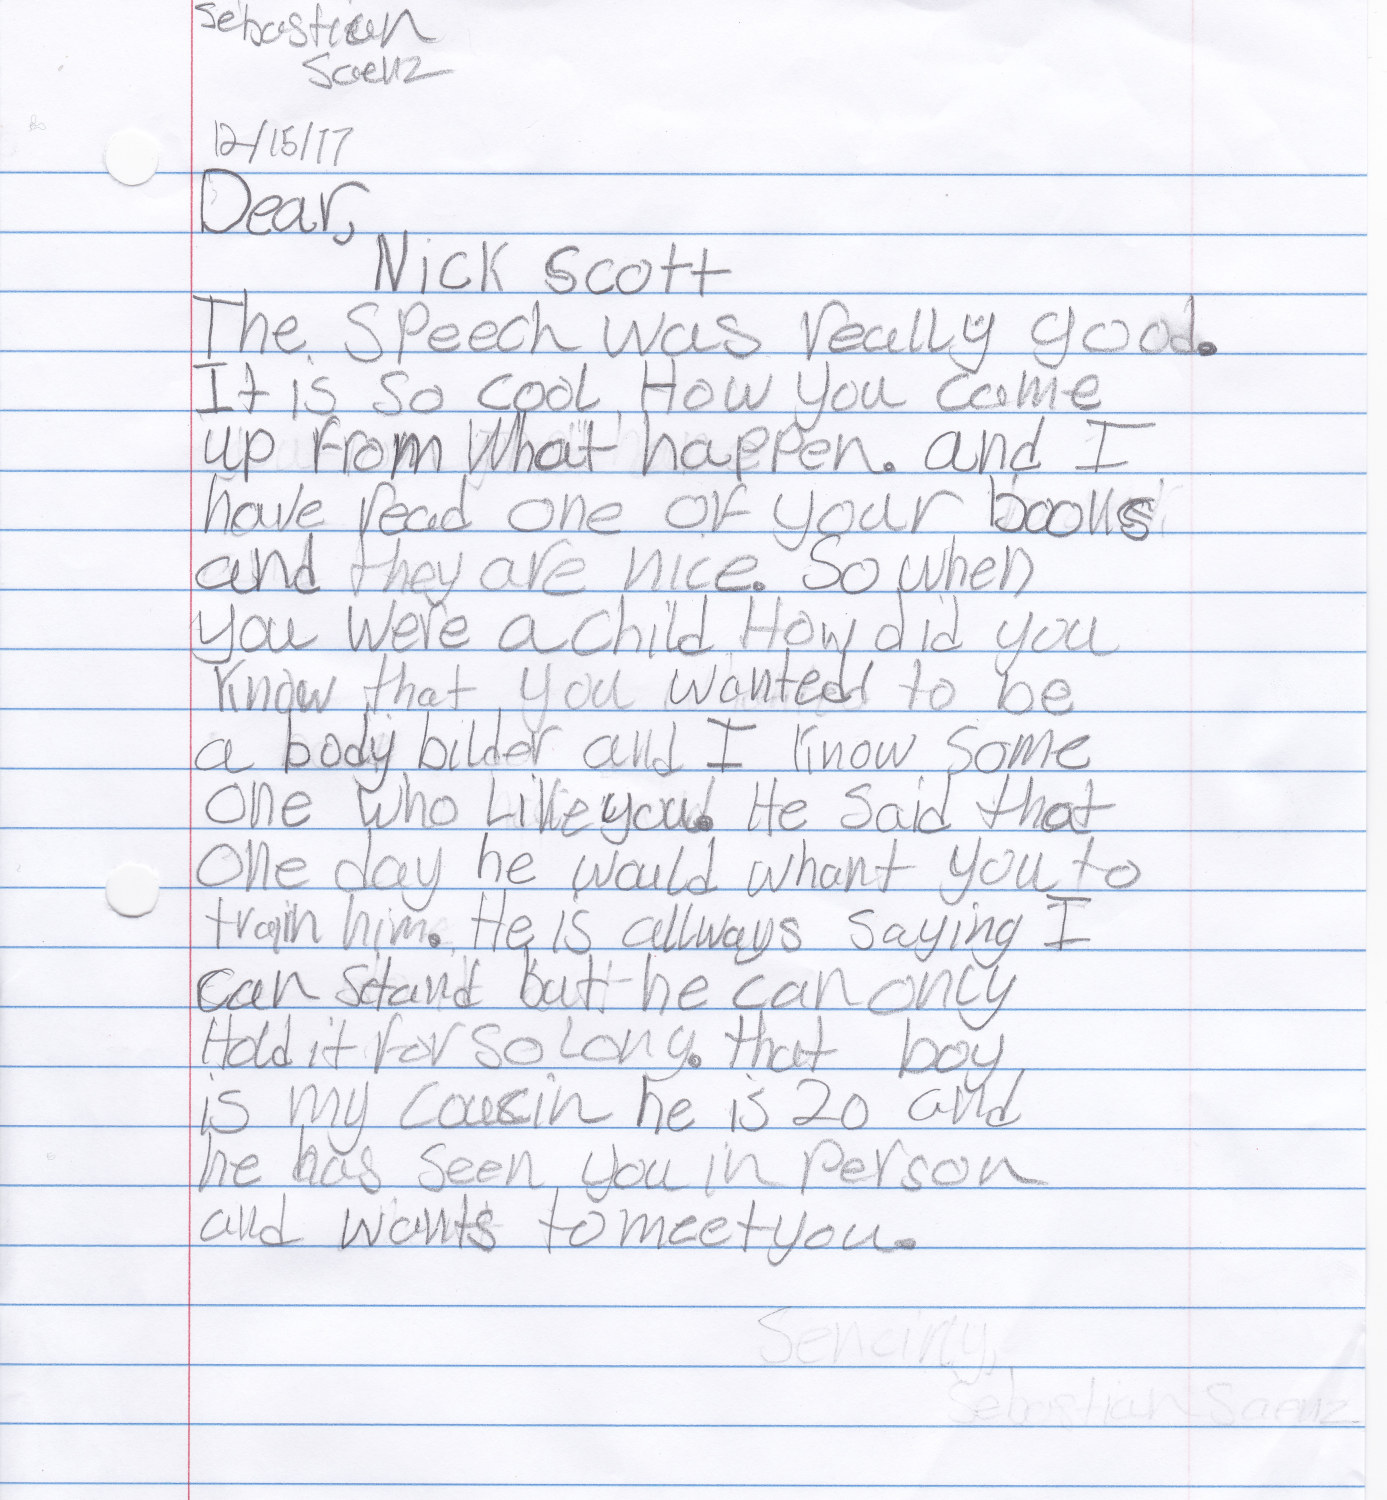 Sebastian
Saenz
12/15/17
Dear,
Nick Scott
The Speech was really good.
It is so cool How you came
up from What happen. and I
have read one of your books
and they are nice. So when
you were a child How did you
Know that you wanted to be
a body bilder and I know some
one who Like you. He said that
one day he would whant you to
train him. He is allways saying I
can stand but he can only
Hold it for so long. that boy
is my cousin he is 20 and
he has seen you in person
and wants to meet you.
Sencirly,
Sebastian Saenz